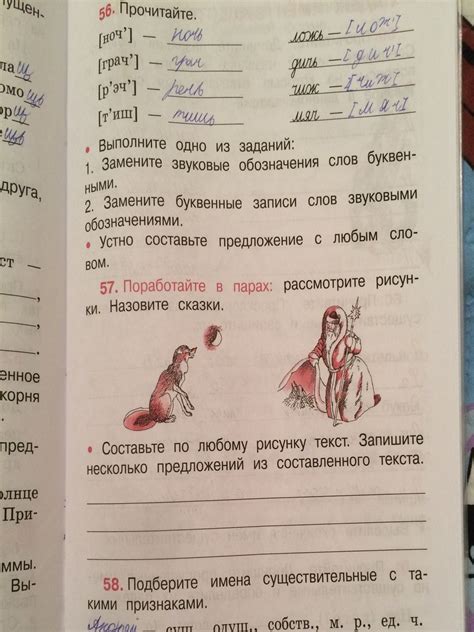 56. Прочитайте.
[ноч'] — ночь ложь — [лож]
[грач'] — грач дичь — [дич]
[р'эч'] — речь чиж — [чиж]
[т'иш] — тишь мяч — [мач]
• Выполните одно из заданий:
1. Замените звуковые обозначения слов буквен-
ными.
2. Замените буквенные записи слов звуковыми
обозначениями.
• Устно составьте предложение с любым сло-
вом.
57. Поработайте в парах: рассмотрите рисун-
ки. Назовите сказки.
• Составьте по любому рисунку текст. Запишите
несколько предложений из составленного текста.
58. Подберите имена существительные с та-
кими признаками.
— сущ., одуш., собств., м. р., ед. ч.
ущен-
друга,
ст —
енное
корня
пред-
олнце
При-
аммы.
Вы-